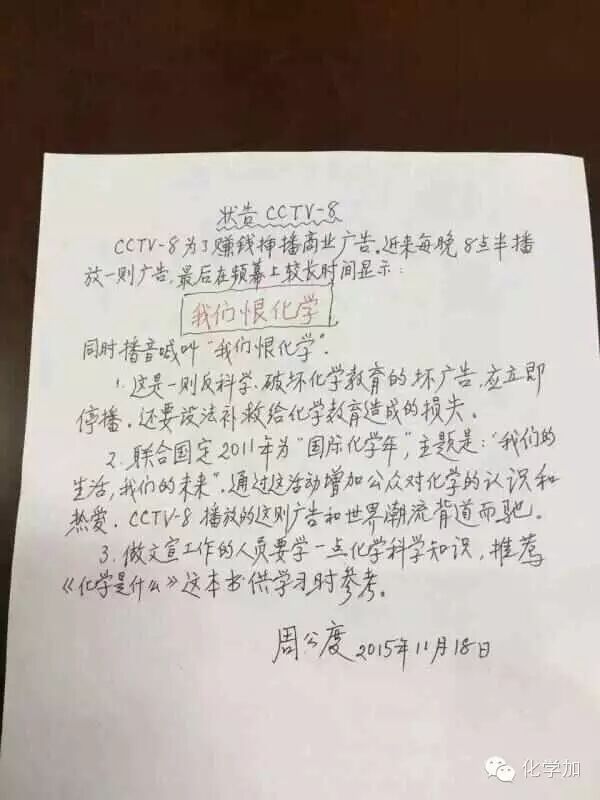 状告 CCTV-8
CCTV-8为了赚钱插播商业广告,近来每晚8点半播
放一则广告,最后在频幕上较长时间显示:
我们恨化学
同时播音喊叫“我们恨化学”.
1. 这是一则反科学、破坏化学教育的坏广告,应立即
停播.还要设法补救给化学教育造成的损失.
2. 联合国定2011年为“国际化学年”,主题是:“我们的
生活,我们的未来”.通过这活动增加公众对化学的认识和
热爱.CCTV-8播放的这则广告和世界潮流背道而驰.
3. 做文宣工作的人员要学一点化学科学知识,推荐
《化学是什么》这本书供学习时参考。
周公度 2015年11月18日
化学加